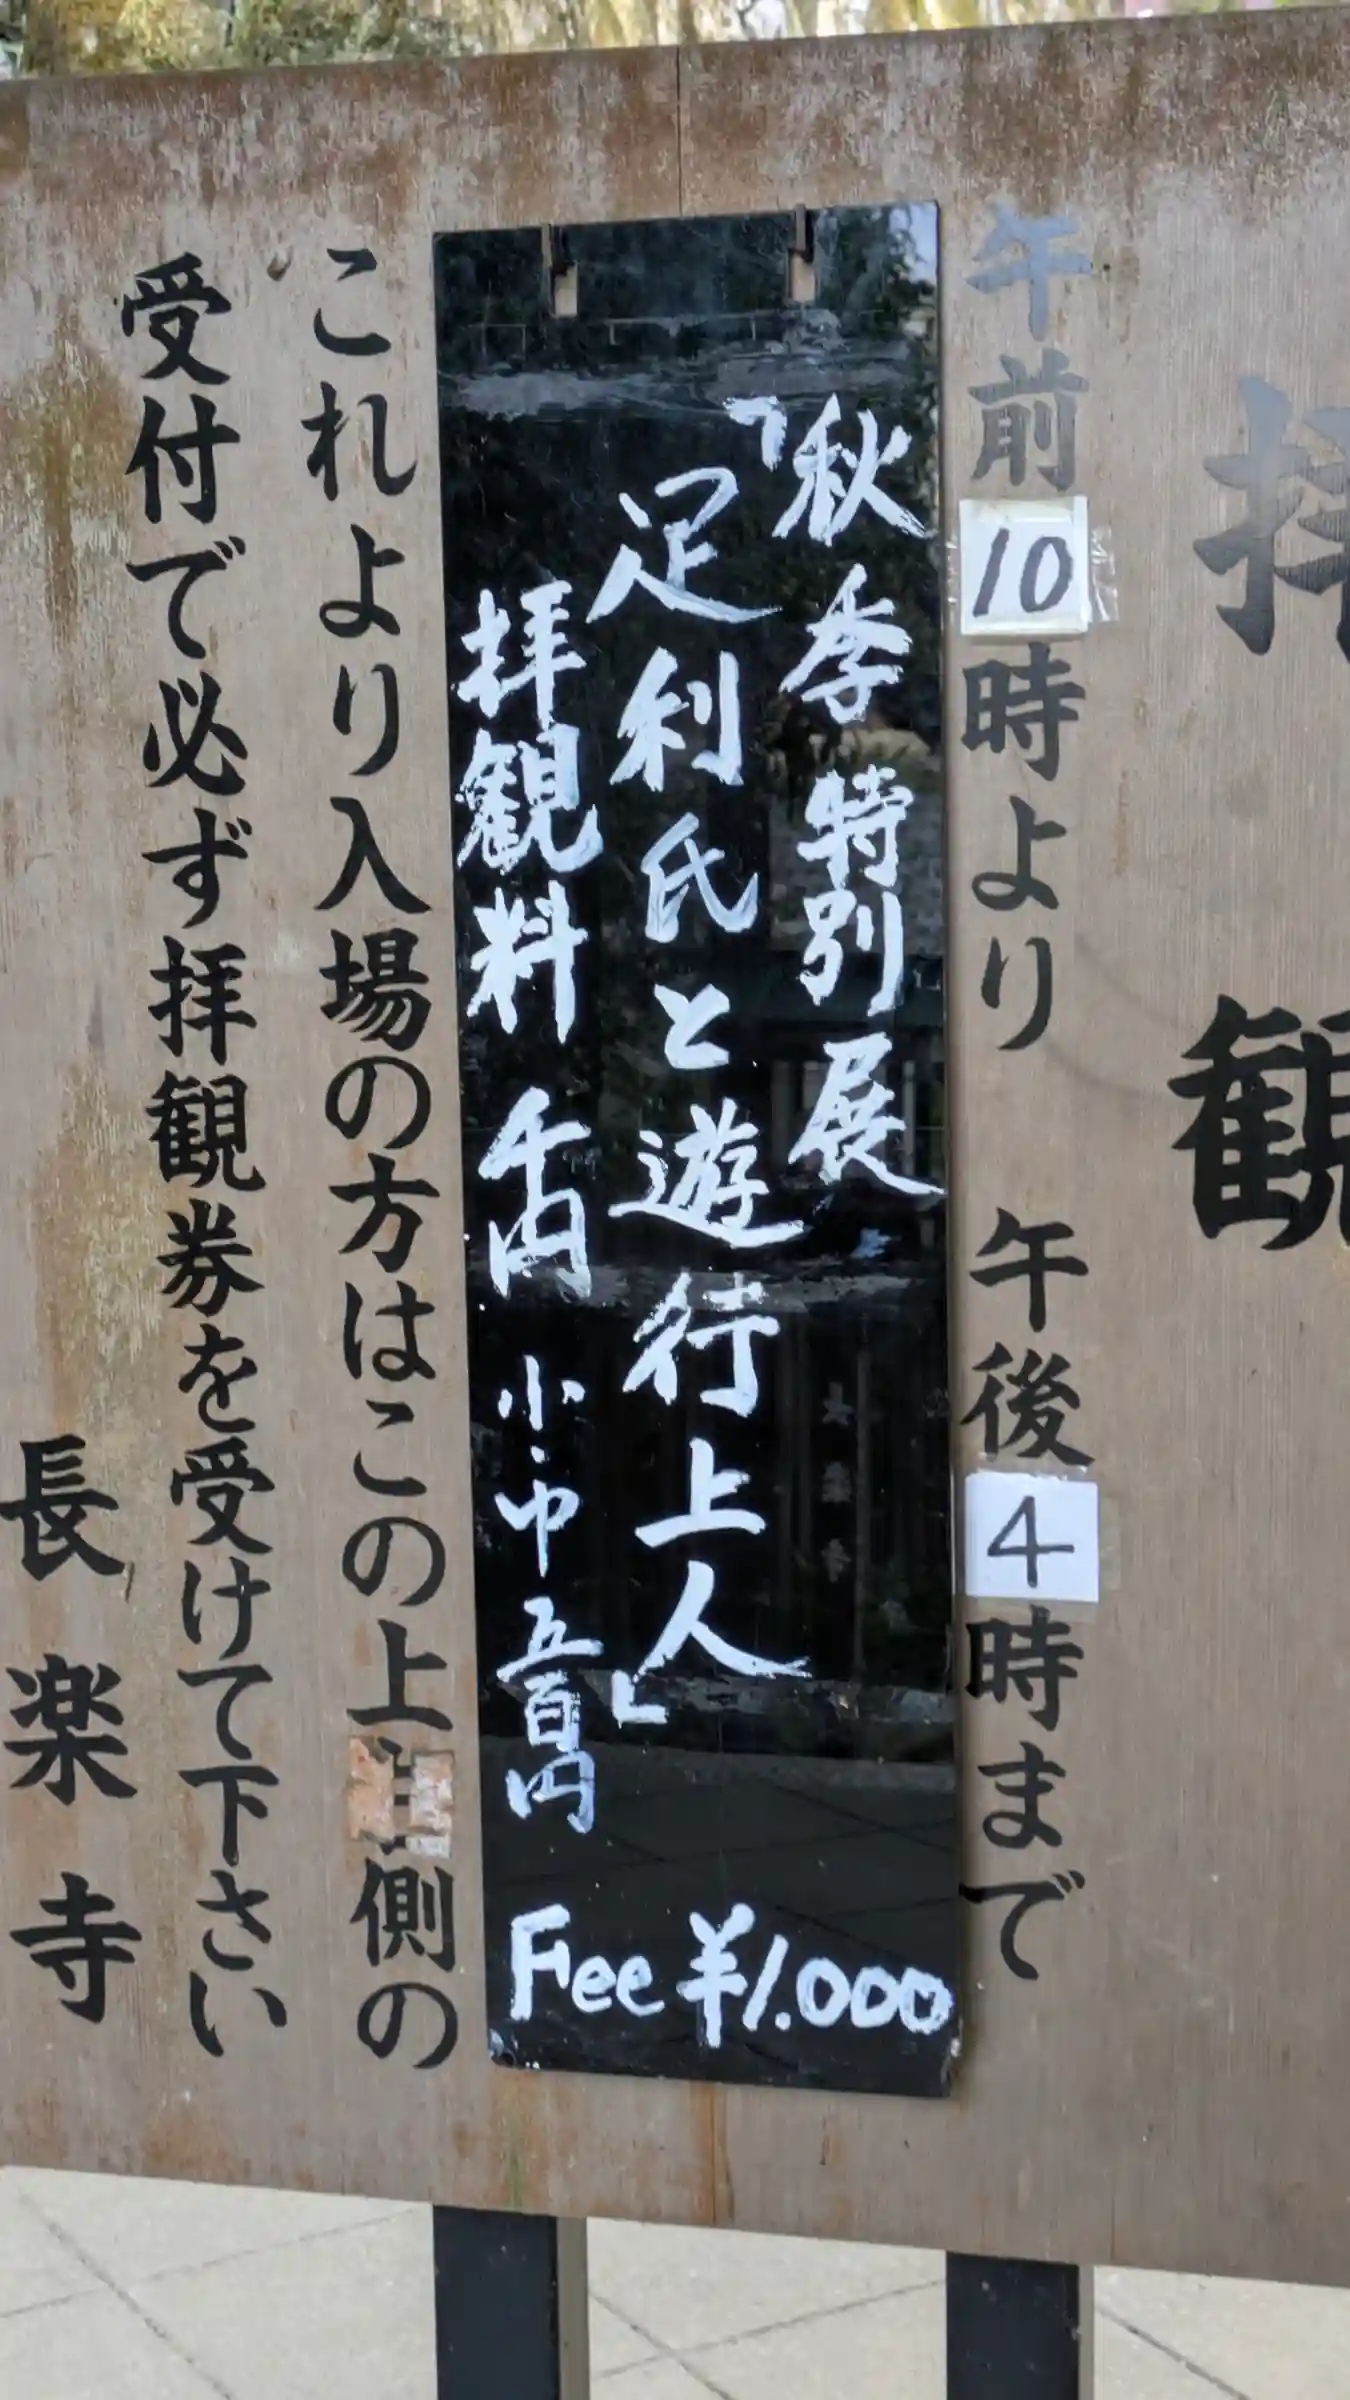 拝観
午前10時より 午後4時まで
秋季特別展
「足利氏と遊行上人」
拝観料 千円 小・中 五百円
Fee ¥1.000
これより入場の方はこの上 側の
受付で必ず拝観券を受けて下さい
長楽寺